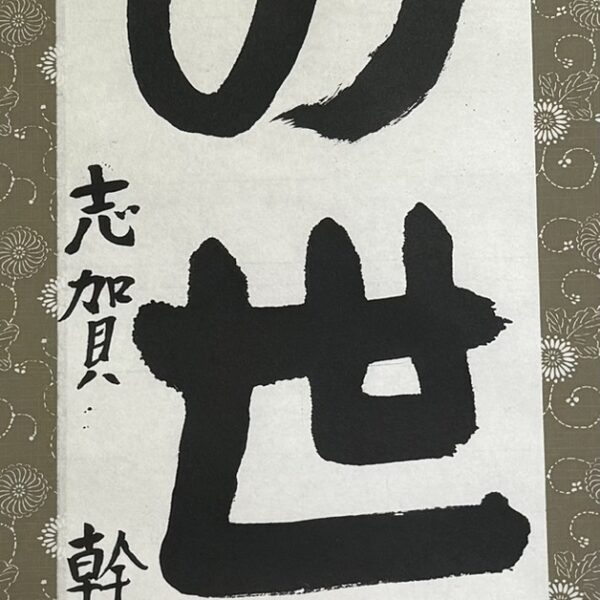 の世
志賀幹